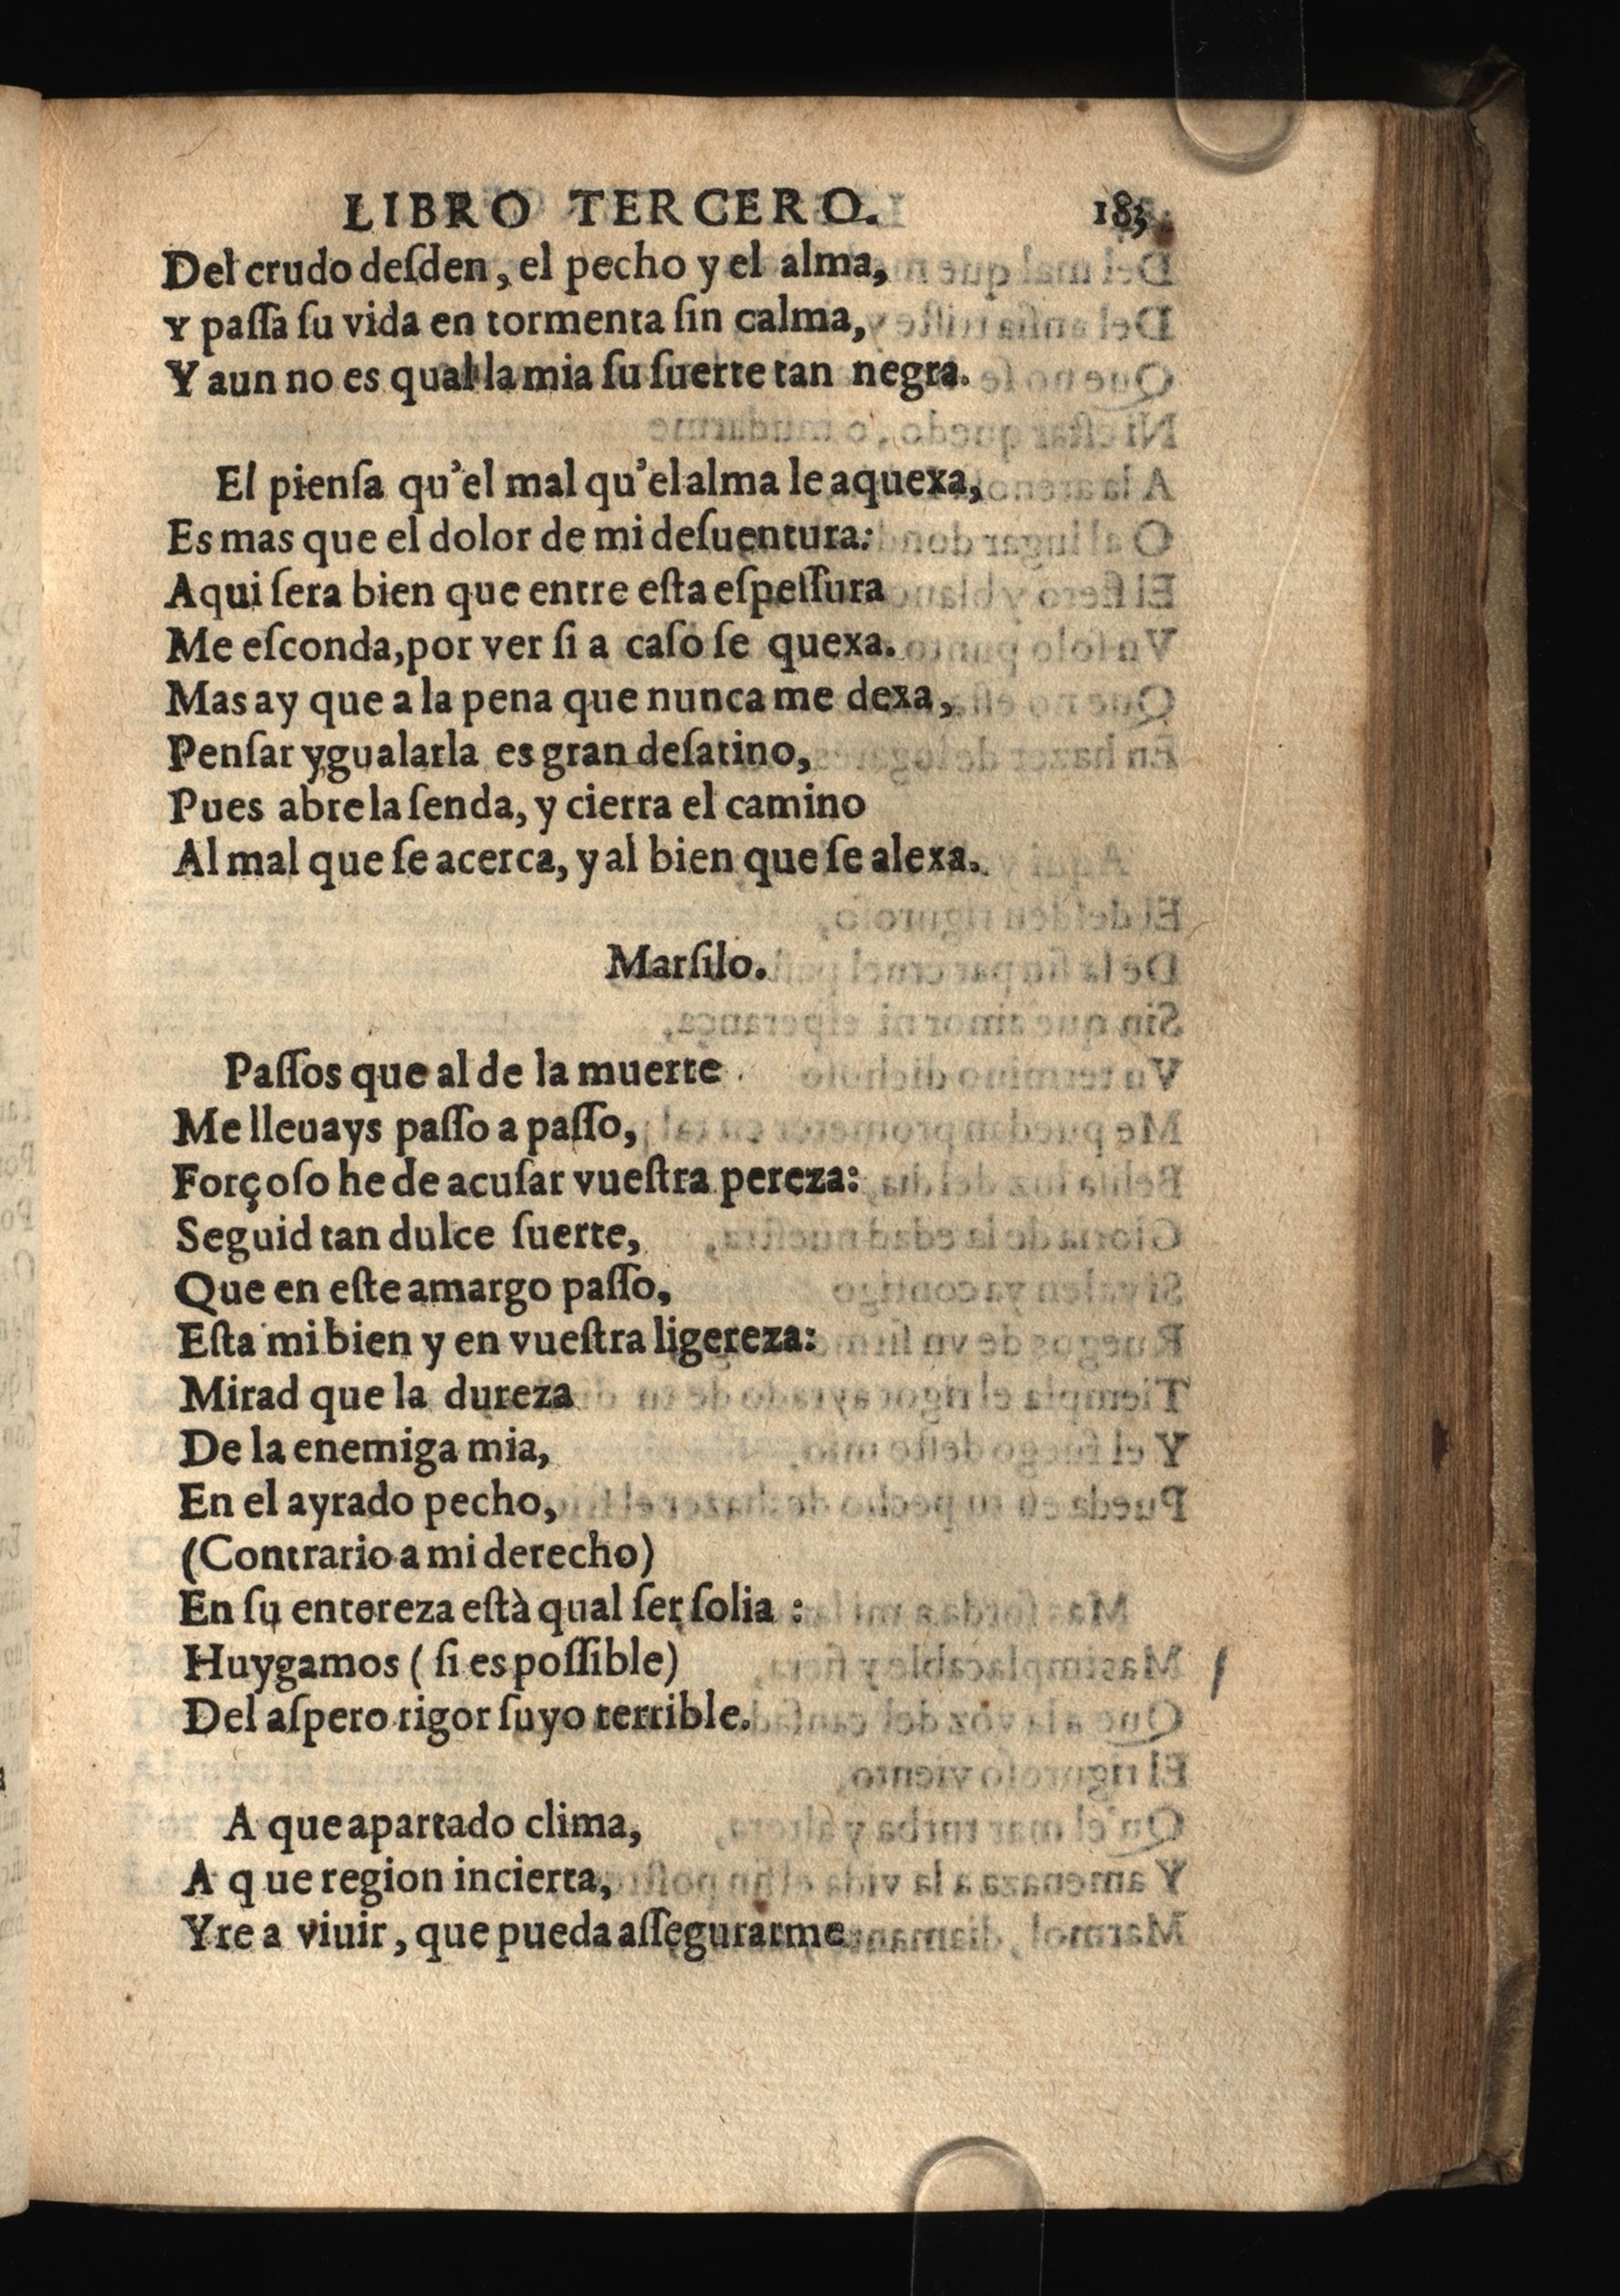 LIBRO TERCERO. 183
Del crudo deſden, el pecho y el alma,
Y paſſa ſu vida en tormenta ſin calma,
Y aun no es qual la mia ſu ſuerte tan negra.
El pienſa qu'el mal qu'el alma le aquexa,
Es mas que el dolor de mi deſuentura:
Aqui ſera bien que entre eſta eſpeſſura
Me eſconda, por ver ſi a caſo ſe quexa.
Mas ay que a la pena que nunca me dexa,
Penſar ygualarla es gran deſatino,
Pues abre la ſenda, y cierra el camino
Al mal que ſe acerca, y al bien que ſe alexa.
Marſilo.
Paſſos que al de la muerte
Me lleuays paſſo a paſſo,
Forçoſo he de acuſar vueſtra pereza:
Seguid tan dulce ſuerte,
Que en eſte amargo paſſo,
Eſta mi bien y en vueſtra ligereza:
Mirad que la dureza
De la enemiga mia,
En el ayrado pecho,
(Contrario a mi derecho)
En ſu entereza eſtà qual ſer ſolia :
Huygamos ( ſi es poſſible)
Del aſpero rigor ſuyo terrible.
A que apartado clima,
A q ue region incierta,
Yre a viuir, que pueda aſſegurarme